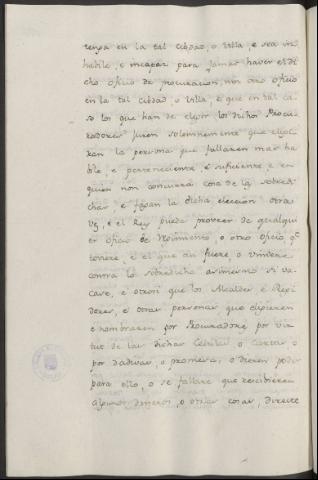 tenga en la tal Cibdad, o Villa, e sea in
habile, e incapaz para jamas haver el di
cho oficio de procuracion, nin otro oficio
en la tal Cibdad, o Villa, e que en tal ca
so los que han de elegir los dichos Procu
radores juren solemnemente que elegi
ran la persona que fallaren mas ha
ble, e perteneciente, e suficiente, e en
quien non concurra cosa de las sobredi
chas e fagan la dicha eleccion otra
vez, e el Rey pueda proveer de qualqui
er oficio de Regimiento, o otro oficio q.e
toviere, e el que asi fuere, o viniere
contra lo sobredicho asimismo si va
care, e otrosi que los Alcaldes e Regi
dores, e otras personas que eligieren
e nombraren por Procuradores por vir
tut de las dichas Cedulas, o Cartas o
por dadivas, o promesas, o dieren poder
para ello, o se fallare que recibieren
algunos dineros, o otras cosas, directe